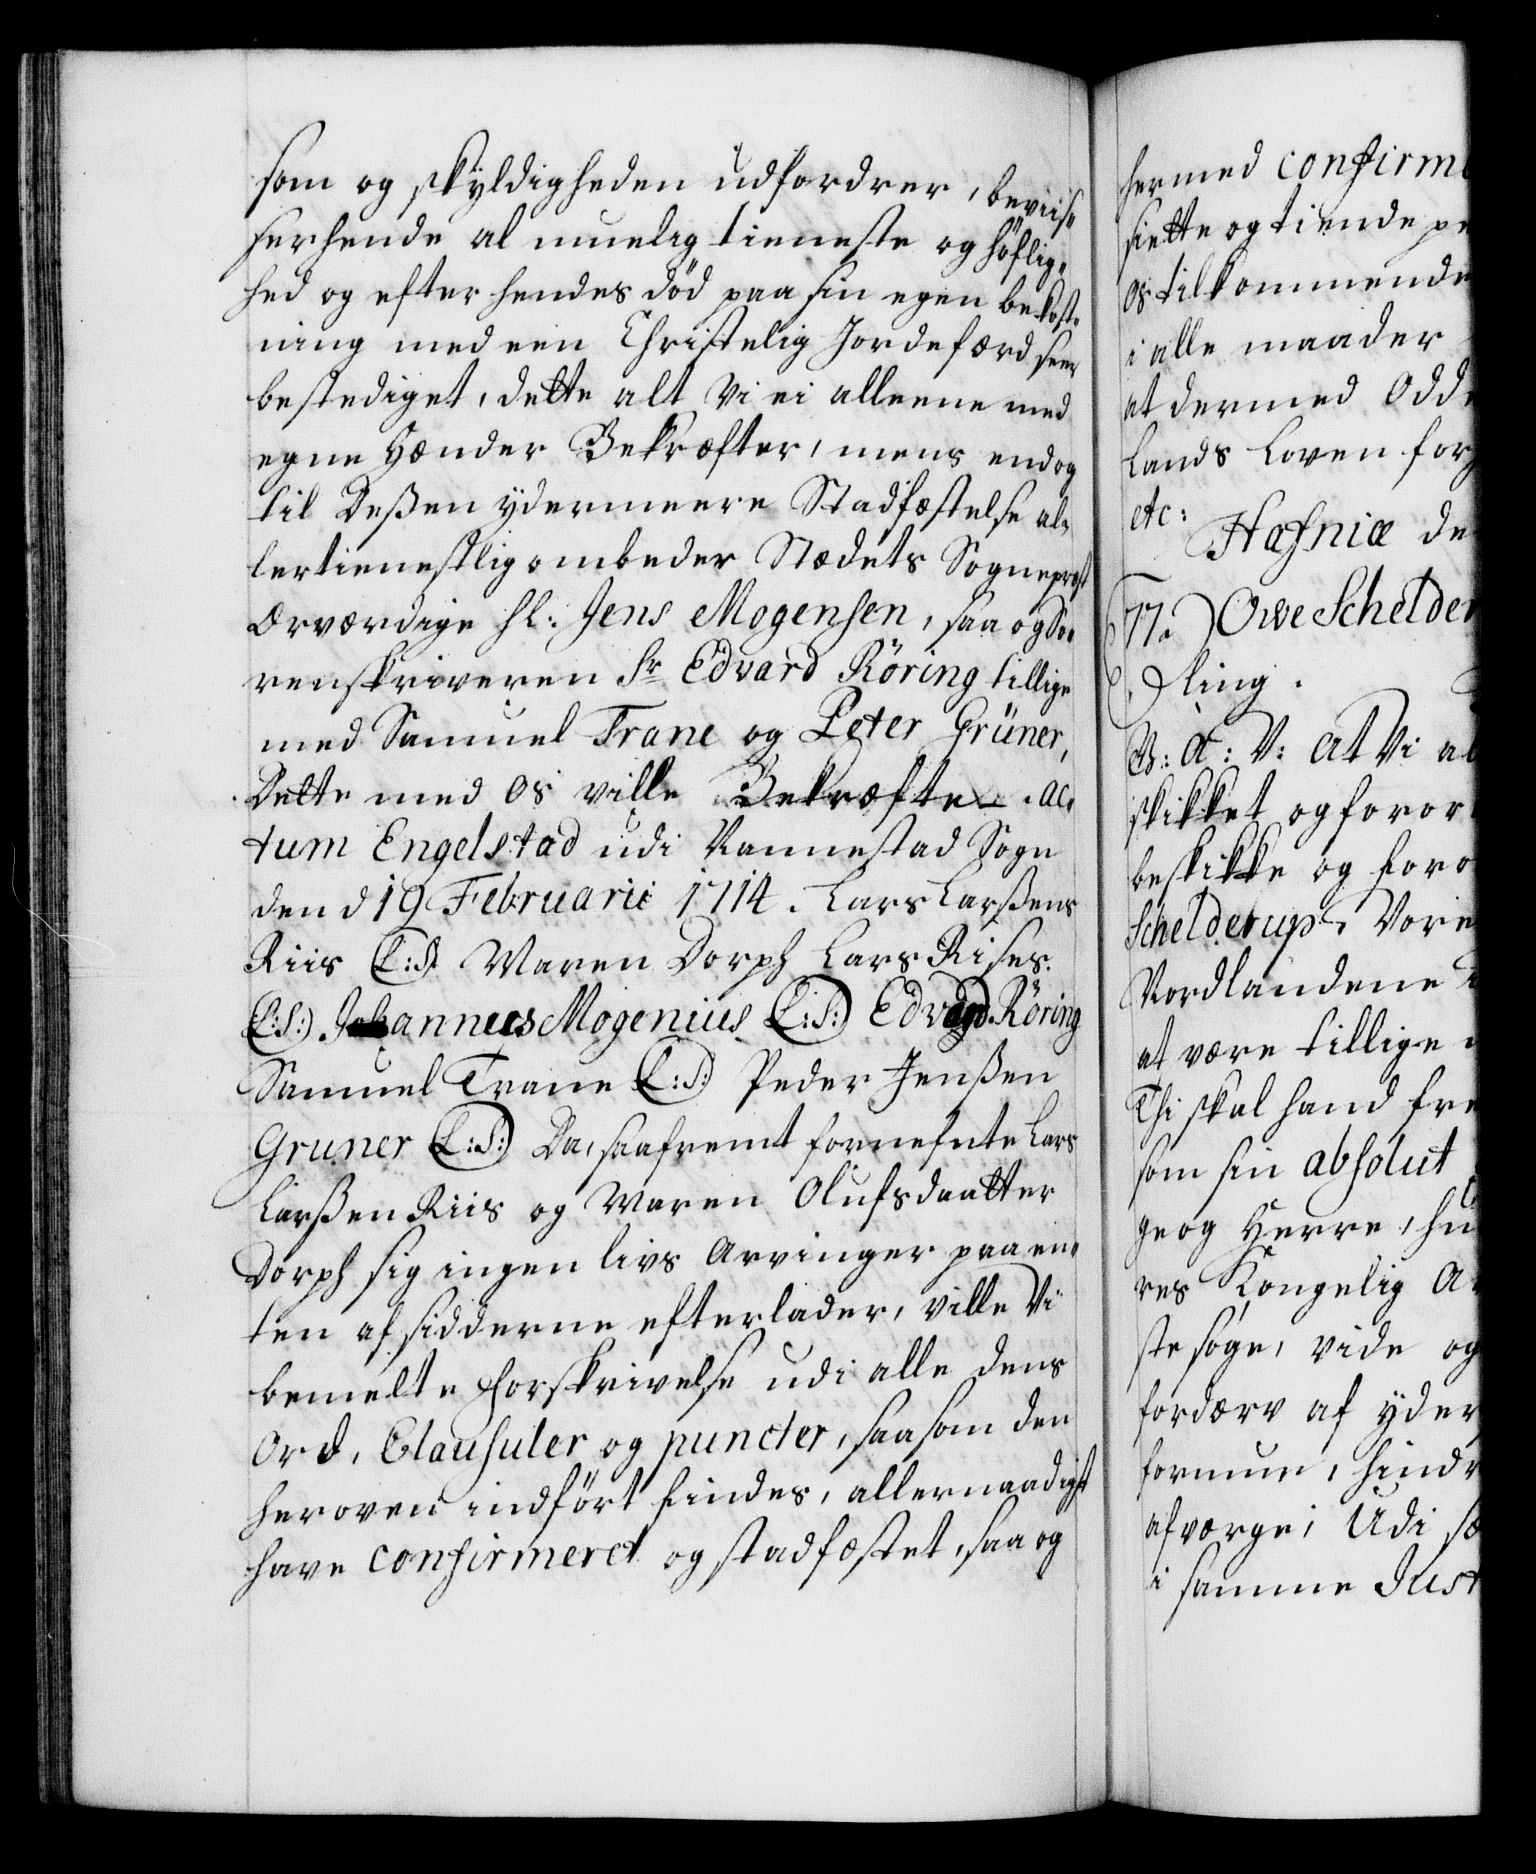 som og skyldigheden udfordrer, beviis„
ser hende al muelig tieneste og höflig„
hed og efter hendes död paa sin egen bekost„
ning med een Christelig Jordefærd seer
bestediget, dette alt vi ei alleene med
egne Hænder Bekræfter, mens endog
til deßen ydermeere Stadfæstelse al„
lertienestlig ombeder Stædets Sognepræst
Ærværdige hl: Jens Mogensen, saa og So„
renskriveren Sr Edvard Röring tillige
med Samuel Trane og Peter Grüner,
Dette med os ville Bekræfte. Ac„
tum Engelstad udi Rannestad Sogn
den d 19 Februarii 1714. Lars Larßens
Riis (L:S:) Maren Dorph Lars Rises.
(L:S:) Johannees Mogenius (L:S:) Edvard Röring
Samuel Trane (L:S:) Peder Jenßen
Gruner (L:S:) Da, saafremt fornefnte Lars
Larßen Riis og Maren Olufsdaatter
Dorph sig ingen livs Arvinger paa en„
ten af sidderne efterlader, ville Vi
bemelte Forskrivelse udi alle dens
Ord, Clausuler og puncter, saasom den
heroven indfört findes, allernaadigst
have confirmeret og stadfæstet, saa og
hermed confirme
siette og tiende pe
os tilkommende
i alle maader
at dermed Odde
Lands Loven for
etc:
Hafniæ de
77. Owe Schelder
Fling.
G: A: V: At Vi al
skikket og foror
beskikke og foro
Schelderup, Vore
Nordlandene
at være tillige
Thi skal hand fre
som sin absolut
ge og Herre, hu
res Kongelig A
ste söge, vide og
fordærv af yder
formue, hindr
afværge; Udi sæ
i samme Just